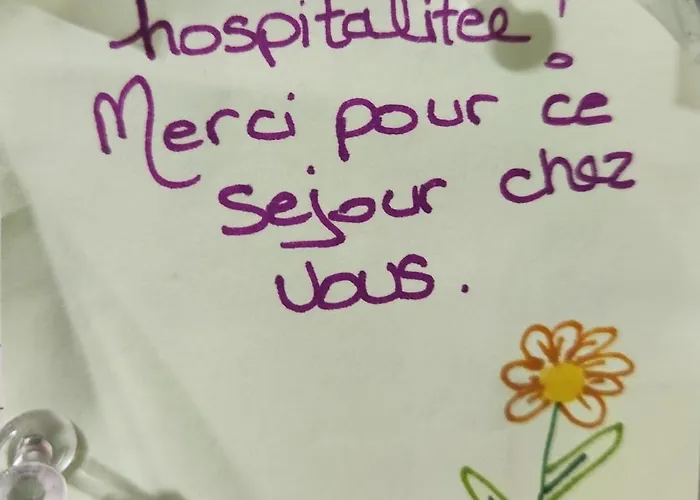 hospitalitee !
Merci pour ce
sejour chez
vous.